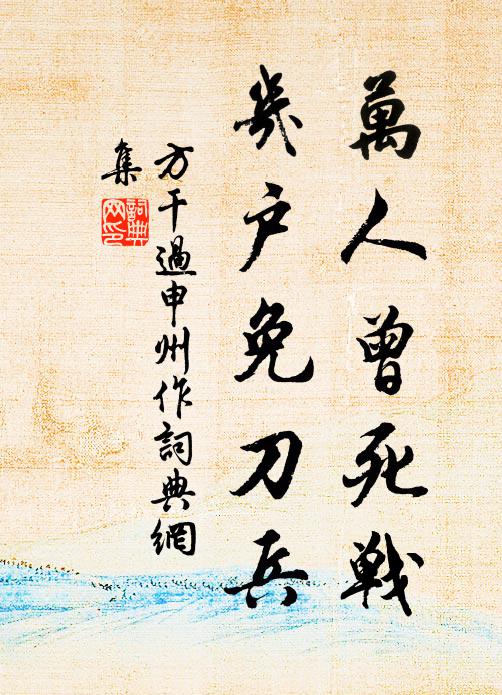 萬人曾死戰
幾户免刀兵
方干過申州作詞典網
集
詞典
网印